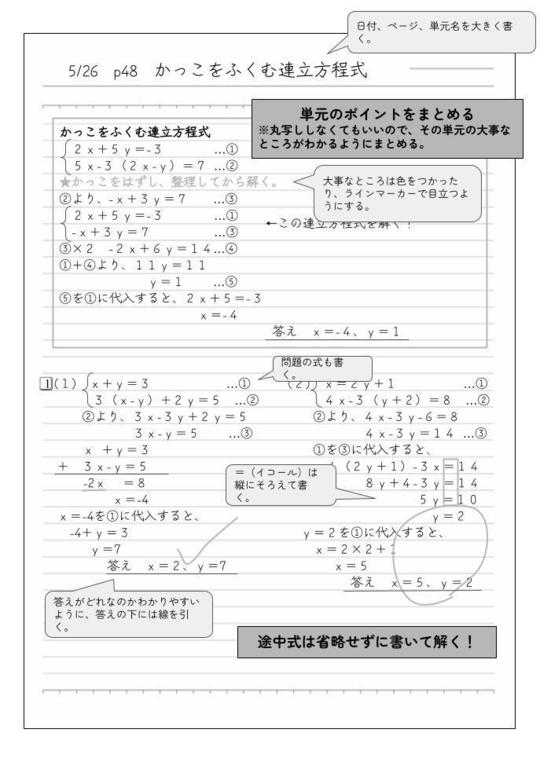 日付、ページ、単元名を大きく書
く。
5/26 p48 かっこをふくむ連立方程式
単元のポイントをまとめる
※丸写ししなくてもいいので、その単元の大事な
ところがわかるようにまとめる。
かっこをふくむ連立方程式
2x+5y=-3 …①
5x-3(2x-y)=7 …②
★かっこをはずし、整理してから解く。
大事なところは色をつかった
り、ラインマーカーで目立つよ
うにする。
②より、-x+3y=7 …③
2x+5y=-3 …①
-x+3y=7 …③
←この連立方程式を解く!
③×2 -2x+6y=14…④
①+④より、11y=11
y=1 …⑤
⑤を①に代入すると、2x+5=-3
x=-4
答え x=-4、y=1
問題の式も書
く。
1(1) x+y=3 …①
3(x-y)+2y=5 …②
②より、3x-3y+2y=5
3x-y=5 …③
x +y=3
+ 3x-y=5
-2x =8
x=-4
x=-4を①に代入すると、
-4+y=3
y=7
答え x=2、y=7
(2) x=2y+1 …①
4x-3(y+2)=8 …②
②より、4x-3y-6=8
4x-3y=14 …③
①を③に代入すると、
(2y+1)-3x=14
8y+4-3y=14
5y=10
y=2
y=2を①に代入すると、
x=2×2+1
x=5
答え x=5、y=2
=(イコール)は
縦にそろえて書
く。
答えがどれなのかわかりやすい
ように、答えの下には線を引
く。
途中式は省略せずに書いて解く!